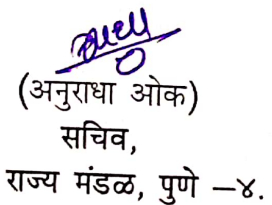 (अनुराधा ओक)
सचिव,
राज्य मंडळ, पुणे –४.